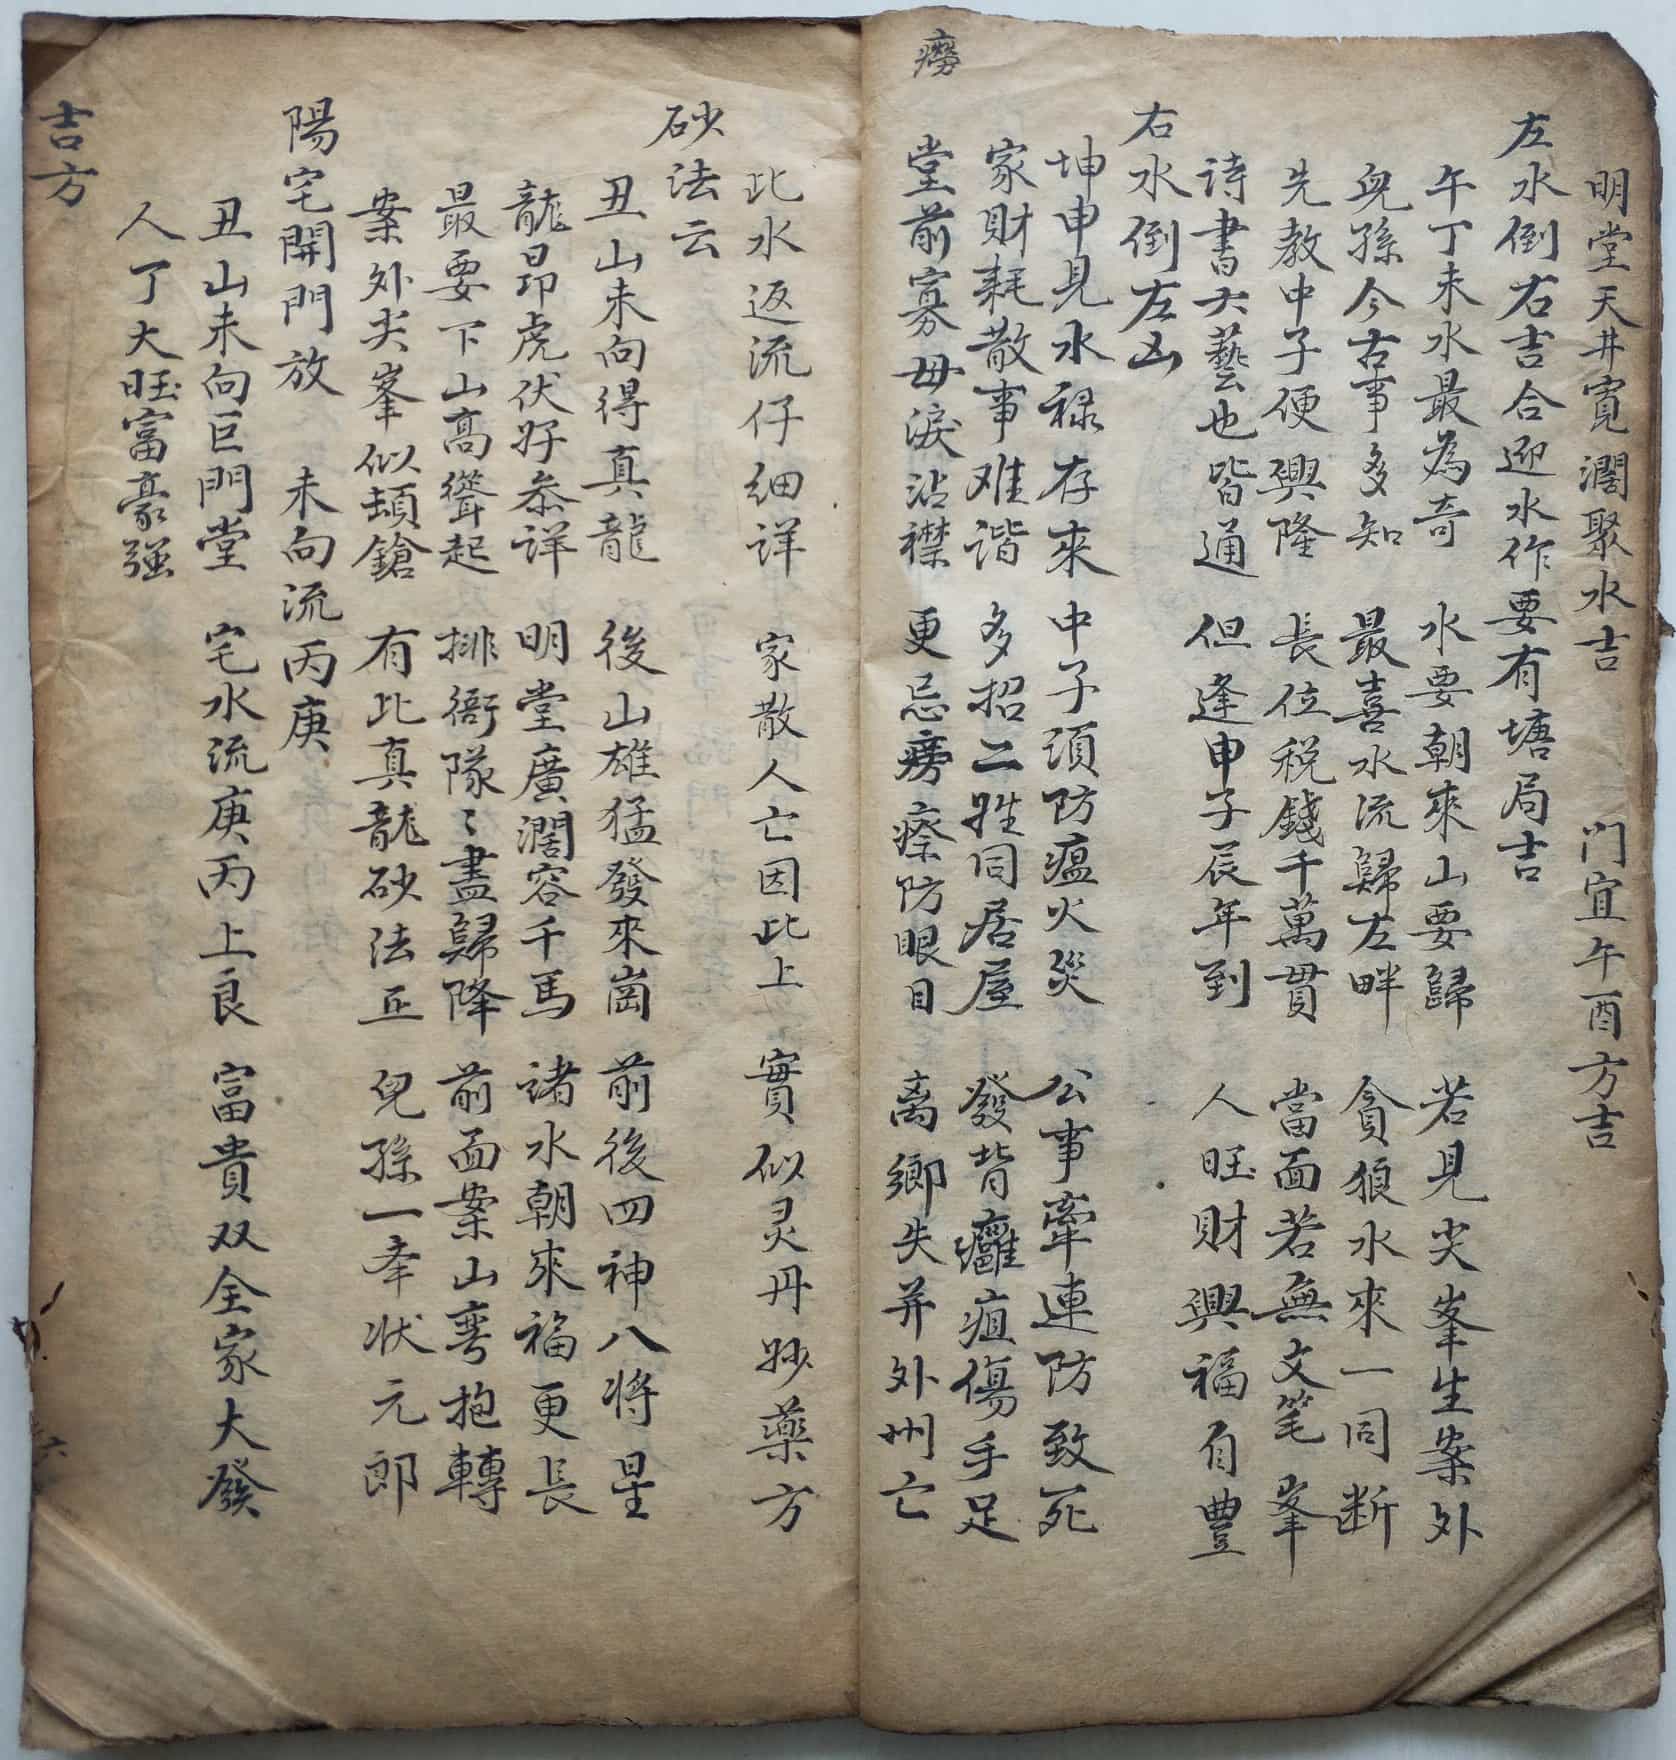 明堂天井寬濶聚水吉 門宜午酉方吉
左水倒右吉合迎水作要有塘局吉
午丁未水最為奇 水要朝來山要歸 若見尖峯生案外
兒孫今古事多知 最喜水流歸左畔 貪狼水來一同断
先教中子便興隆 長位税錢千萬貫 當面若無文笔峯
詩書六藝也皆通 但逢申子辰年到 人旺財興福自豊
右水倒左凶
坤申見水禄存來 中子須防瘟火災 公事牽連防致死
家財耗散事难谐 多招二姓同居屋 發背癰疽傷手足
堂前寡母淚沾襟 更忌痨瘵防眼目 离鄉失井外州亡
癆
比水返流仔細详 家散人亡因比上 實似灵丹妙藥方
砂法云
丑山未向得真龍 後山雄猛發來崗 前後四神八将星
龍昂虎伏好叅详 明堂廣濶容千馬 诸水朝來福更長
最要下山高聳起 排衙隊〻盡歸降 前面案山弯抱轉
案外尖峯似頓鎗 有比真龍砂法正 兒孫一牵状元郎
陽宅開門放 未向流丙庚
丑山未向巨門堂 宅水流庚丙上良 富貴双全家大發
人丁大旺富豪强
吉方
六